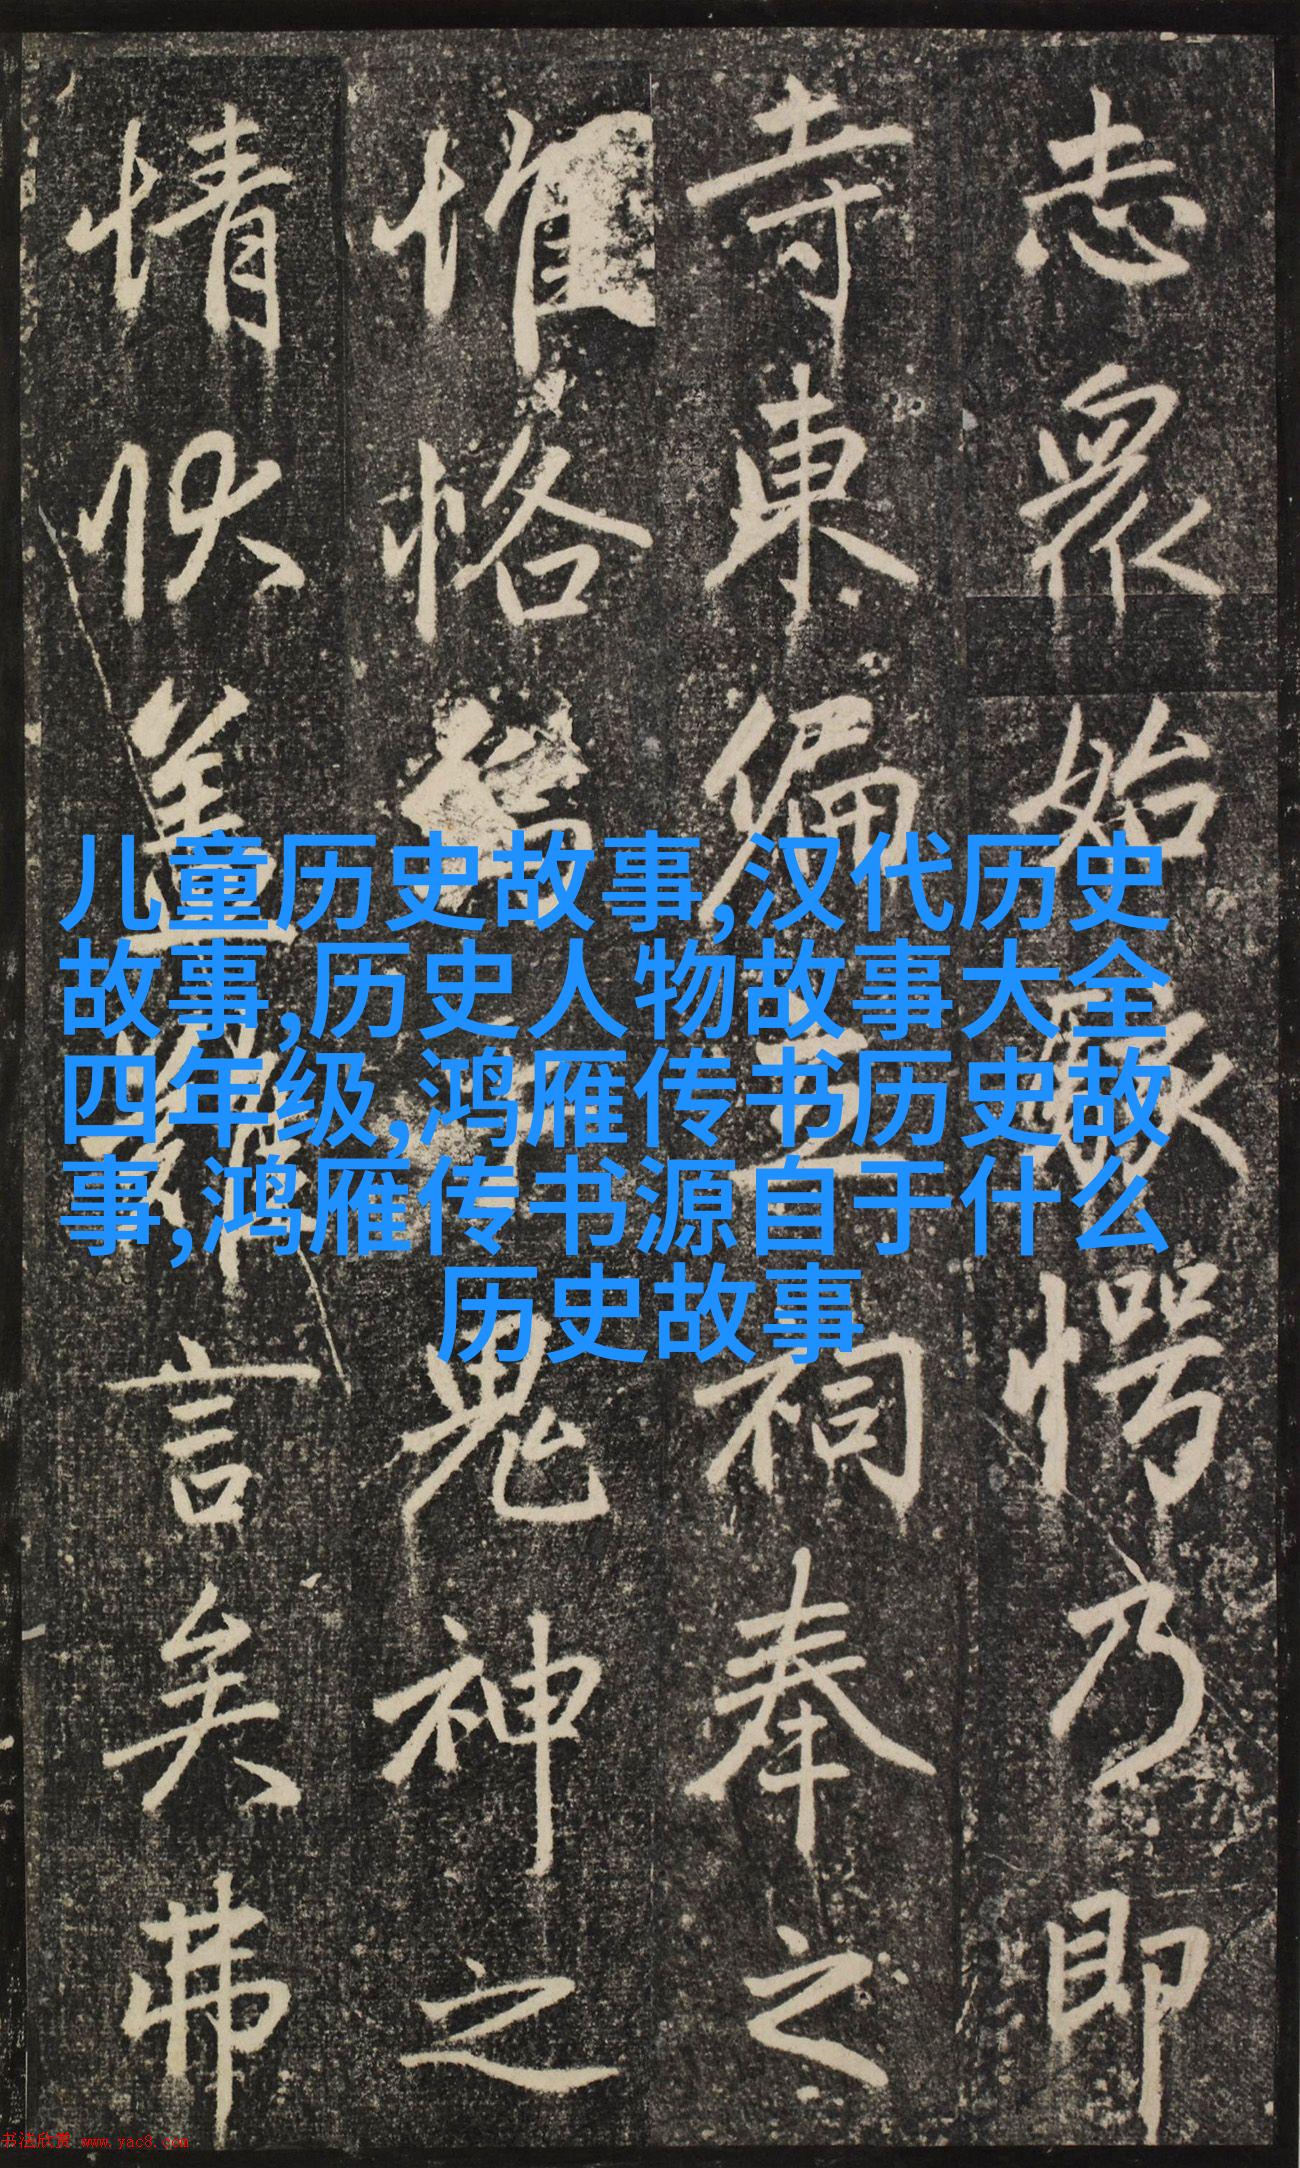 志眾始駭愕乃即
寺東偏立祠奉之
惟恪鬼神之
情狀蓋難言矣弗
儿童历史故事,汉代历史
故事,历史人物故事大全
四年级,鸿雁传书历史故
事,鸿雁传书源自于什么
历史故事
书法欣赏 www.yac8.com